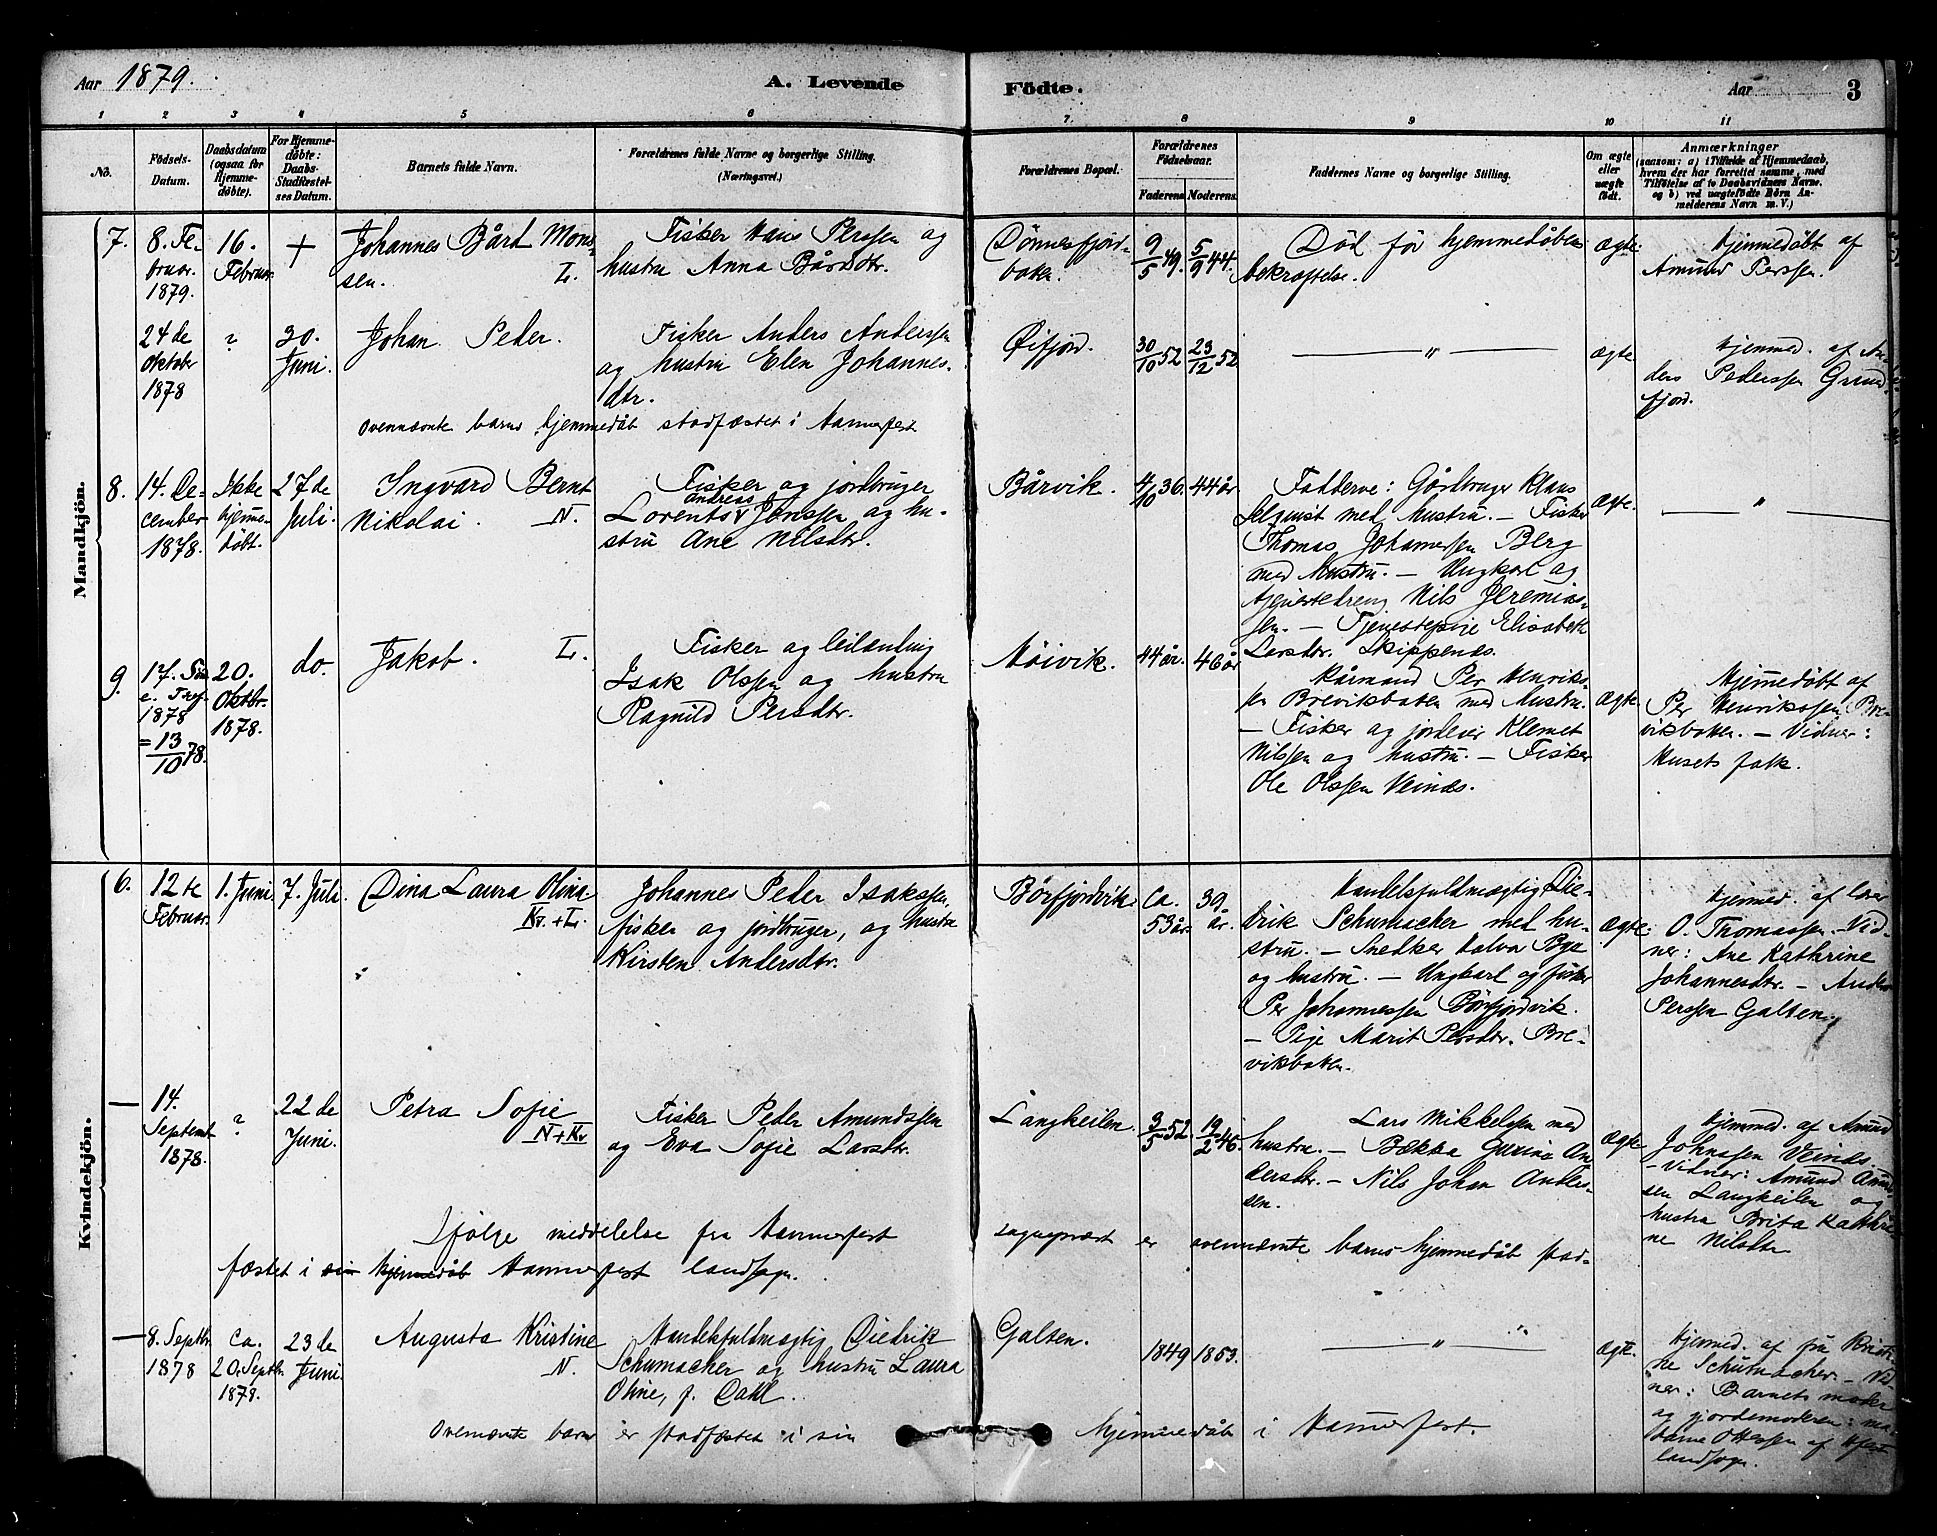 Aar 1879.
A. Levende Födte.
Aar 3
1 2 3 4 5 6 7. 8 9 10 11
No.
Födsels-Datum.
Daabsdatum (ogsaa for Hjemmedøbte).
For Hjemmedøbte: Daabs-Stadfæstelses Datum.
Barnets fulde Navn.
Forældrenes fulde Navne og borgerlige Stilling. (Næringsvei.)
Forældrenes Bopæl.
Forældrenes Födselsaar.
Faderens. Moderens.
Faddernes Navne og borgerlige Stilling.
Om ægte eller uægte födt.
Anmærkninger
(saasom: a) i Tilfælde af Hjemmedaab, hvem der har forrettet samme, med Tilföielse af to Daabsvidners Navne, og b) ved uægtefödte Börn Anmelderens Navn m. V.)
Mandkjön.
7. 8. Februar. 1879.
16. Februar
+
Johannes Bård Monssen. L.
Fisker Hans Perssen og
hustru Anna Bårdsdtr.
Dönnesfjordbaken.
9/5 49. 5/9 44.
Död før hjemmedåbens
bekræftelse.
ægte
Hjemmedöbt af
Amund Perssen.
24de Oktober 1878
?
30. Juni.
Johan Peder.
Fisker Anders Anderssen
og hustru Elen Johannes-
dtr.
Øifjord.
30/10 52 23/12 52
— " —
ægte
Hjemmed. af An-
ders Pederssen Grund
fjord.
Ovennævnte barns hjemmedåb stadfæstet i Hammerfest
8. 14. December 1878.
Ikke hjemmedöbt.
27de Juli.
Ingvard Bernt
Nikolai. N.
Fisker og jordbruger
Lorents Andreas Jonssen og hu-
stru Ane Nilsdtr.
Bårvik.
4/10 36. 44 år.
Faddere: Gårdbruger Klaus
Selquist med hustru. — Fisker
Thomas Johannessen Berg
med hustru. — Ungkarl og
tjenestedreng Nils Jeremias-
sen. — Tjenestepige Elisabeth
Larsdtr. Skippenæs.
ægte.
— " —
9. 17. Sön. e. Tref. 1878 = 13/10 78.
20. Oktbr. 1878.
do.
Jakob. L.
Fisker og leilænding
Isak Olssen og hustru
Ragnild Persdtr.
Möivik.
44 år. 46 år
Kårmand Per Henriks-
sen Brevikbaken med hustru.
— Fisker og jordeier Klemet
Nilssen og hustru. — Fisker
Ole Olssen Veinæs.
ægte.
Hjemmedöbt af
Per Henrikssen Bre-
vikbaken. — Vidner:
Husets folk.
Kvindekjön.
6. 12te Februar.
1. Juni
7. Juli.
Dina Laura Olina
Kv. + L.
Johannes Peder Isakssen,
fisker og jordbruger, og hustru
Kirsten Andersdtr.
Börfjordvik.
Ca. 53 år. 39 år.
Handelsfuldmægtig Die-
drik Schumacher med hu-
stru. — Snedker Halvor Bye
og hustru. — Ungkarl og fisker
Per Johannessen Börfjordvik.
— Pige Marit Persdtr. Bre-
vikbaken.
ægte.
Hjemmed. af lærer
O. Thomassen. — Vid-
ner: Ane Kathrine
Johannesdtr. — Anders
Perssen Galten.
— 14. Septemb 1878.
?
22de Juni.
Petra Sofie
N + Kv
Fisker Peder Amundssen
og Eva Sofie Larsdtr.
Langkeilen.
3/5 52 19/2 46.
Lars Mikkelssen med
hustru. — Bække Gurine An-
dersdtr. — Nils Johan Anders-
sen.
ægte
Hjemmed. af Amund
Johnssen Veinæs
— Vidner: Amund Amund
sen Langkeilen og
hustru Brita Kathri
ne Nilsdtr
Ifølge meddelelse fra Hammerfest sogneprest er ovennævnte barns hjemmedåb stad-
fæstet i sin hjemmedåb Hammerfest landsogn.
— 8. Septbr. 1878
ca. 20. Septbr. 1878.
23de Juni.
Augusta Kristine
N.
Handelsfuldmægtig Diedrik
Schumacher og hustru Laura
Oline, f. Dahl.
Galten.
1849 1853.
— " —
ægte.
Hjemmed. af fru Kristi-
ne Schumacher. — Vid-
ner: Barnets moder
og gjordemoderen: ma-
dame Ottessen af Hfest
landsogn.
Ovennævnte barn er stadfæstet i sin hjemmedåb i Hammerfest.